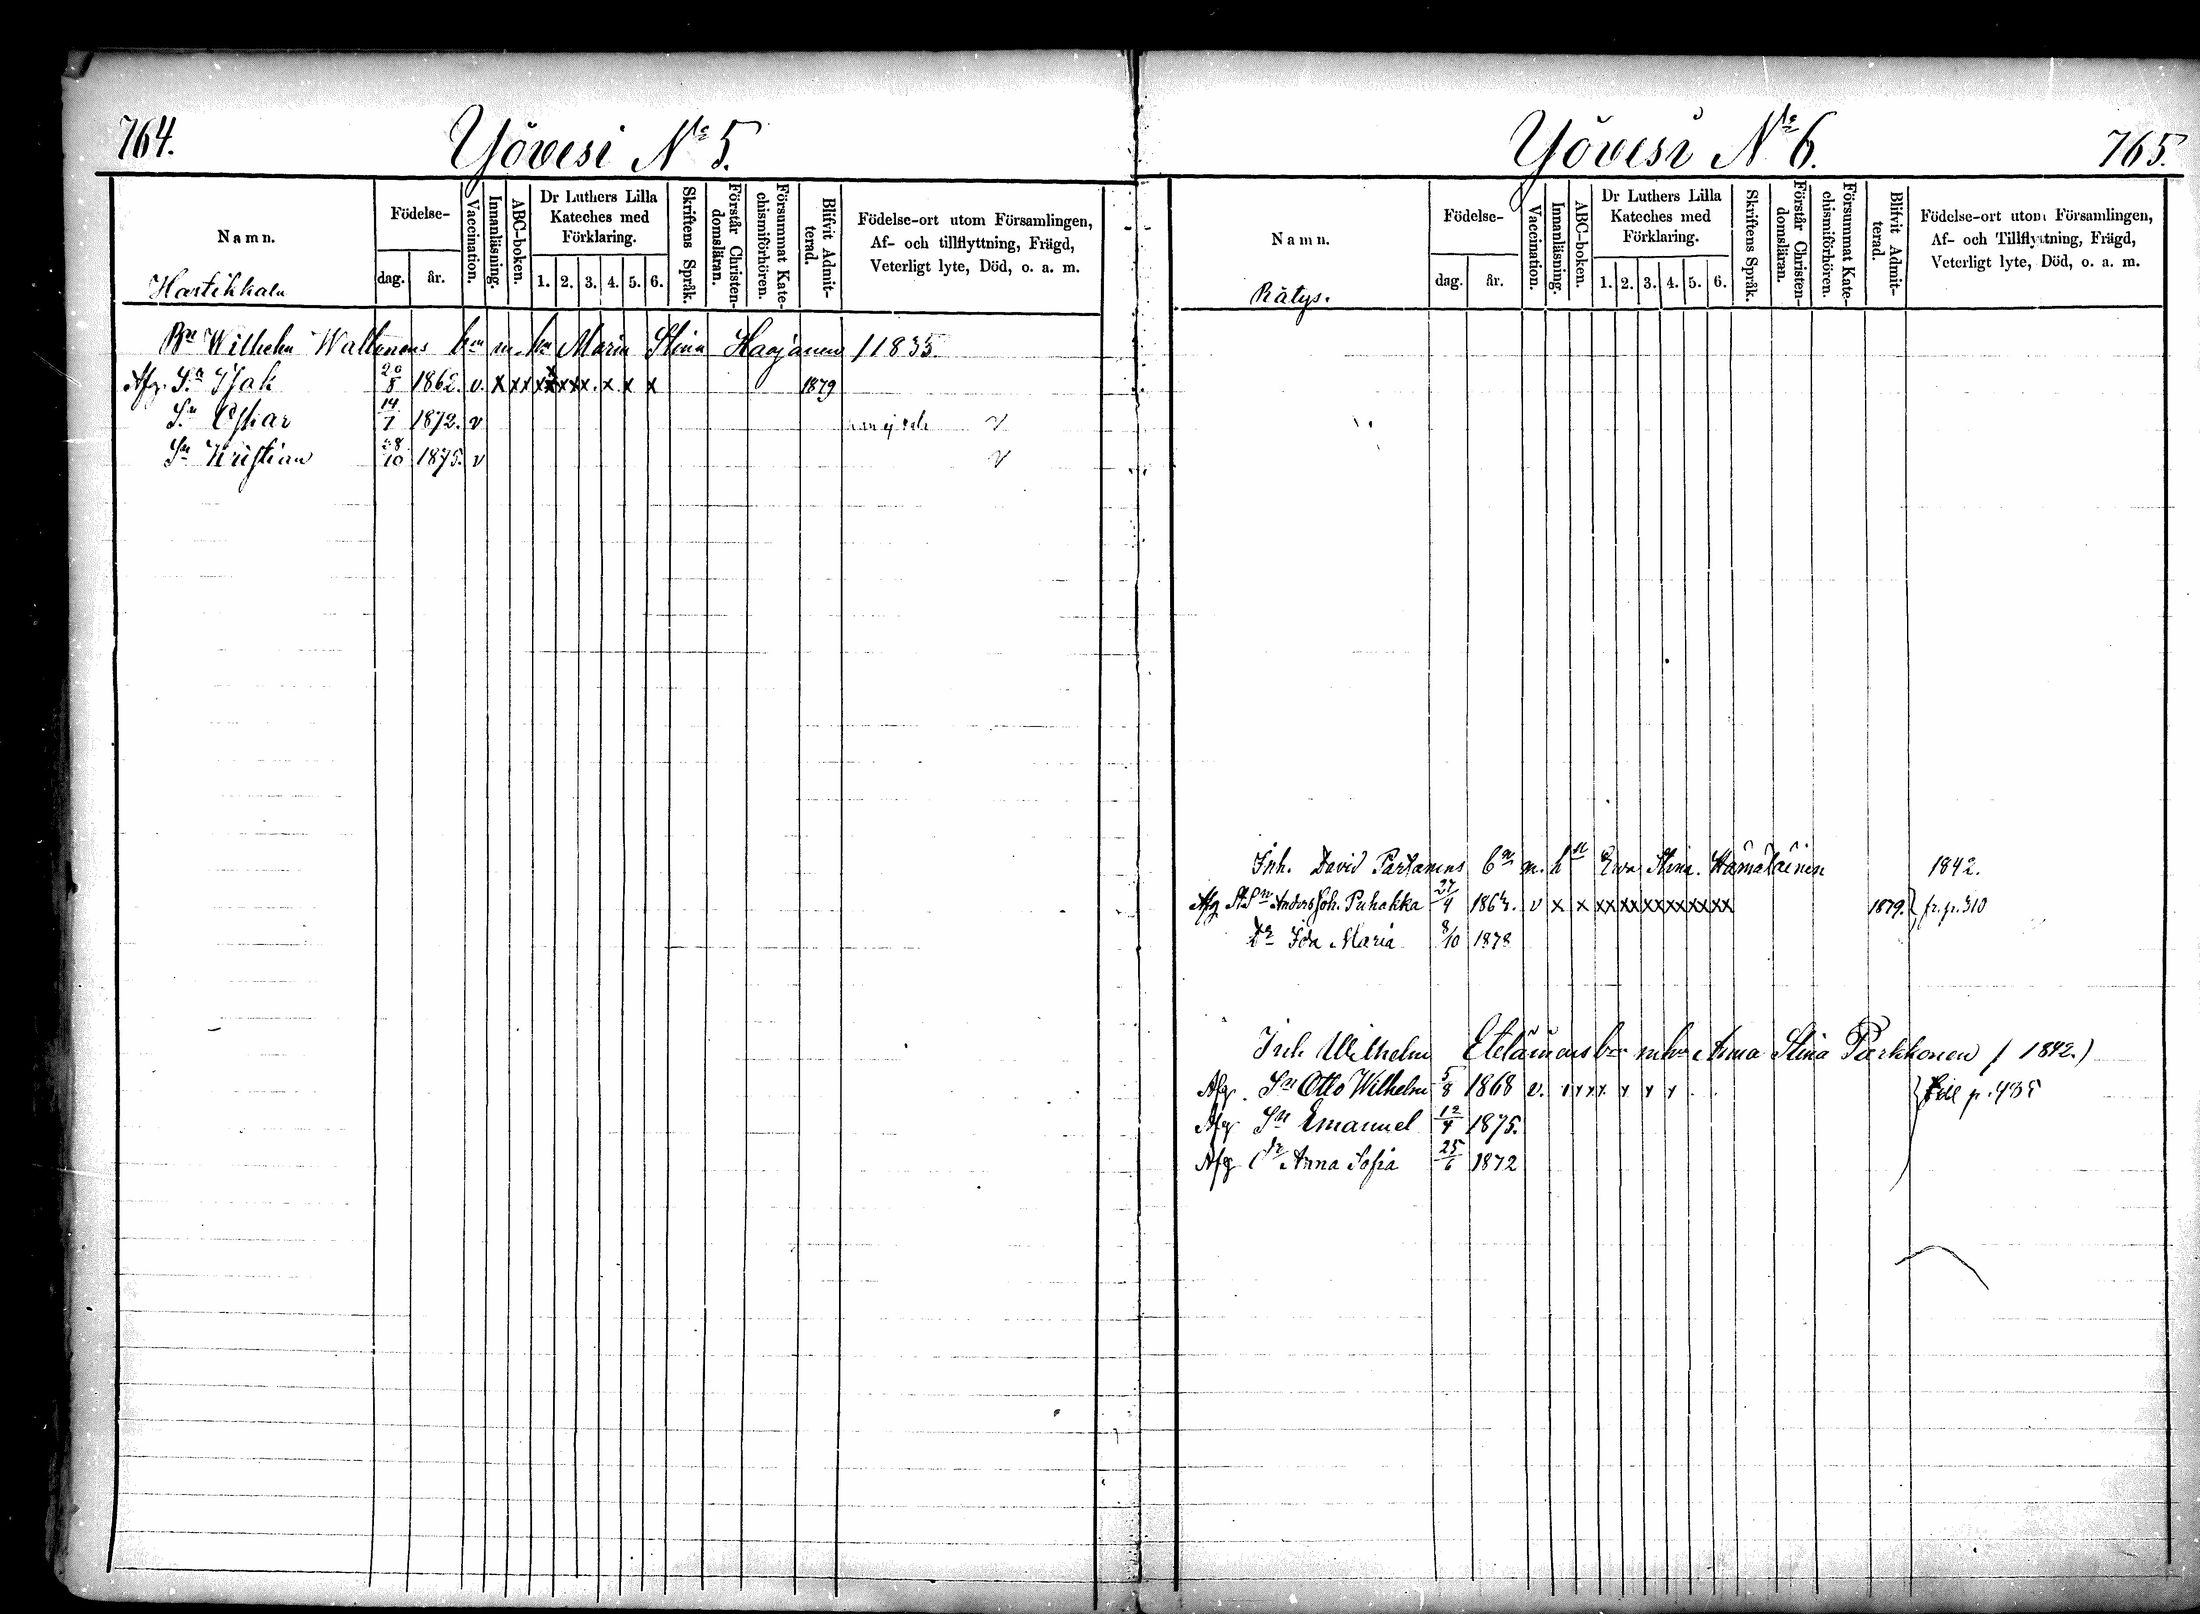 764.
Yövesi № 5.
Namn.
Hartikkala
Födelse-
dag. år.
Vaccination.
Innanläsning.
ABC-boken.
Dr Luthers Lilla
Kateches med
Förklaring.
1. 2. 3. 4. 5. 6.
Skriftens Språk.
Förstår Christen-
domsläran.
Försummat Kate-
chismiförhören.
Blifvit Admit-
terad.
Födelse-ort utom Församlingen,
Af- och tillflyttning, Frägd,
Veterligt lyte, Död, o. a. m.
Bn Wilhelm Waltonens bn m. hn Maria Stina Haajanen / 1835.
Afg. Sn Isak 20/8 1862. v. x x x x x x x x. x. x x 1879
Sn Oskar 14/7 1872. v v
Sn Kristian 28/10 1875. v v
Yövesi № 6.
765.
Namn.
Rätys.
Födelse-
dag. år.
Vaccination.
Innanläsning.
ABC-boken.
Dr Luthers Lilla
Kateches med
Förklaring.
1. 2. 3. 4. 5. 6.
Skriftens Språk.
Förstår Christen-
domsläran.
Försummat Kate-
chismiförhören.
Blifvit Admit-
terad.
Födelse-ort utom Församlingen,
Af- och Tillflyttning, Frägd,
Veterligt lyte, Död, o. a. m.
Inh. David Partanens bn m. hn Eva Stina Hämäläinen 1842.
Afg StSn Anders Joh. Puhakka 27/4 1863. v x x xx xx xx xx xx xx 1879. fr. p. 310
Dr Ida Maria 8/10 1878
Inh Wilhelm Eteläinens bn m hn Anna Stina Parkkonen / 1842.)
Afg. Sn Otto Wilhelm 5/8 1868 v. x x x x. x x x till p. 435
Afg Sn Emanuel 12/4 1875.
Afg Dr Anna Sofia 25/6 1872